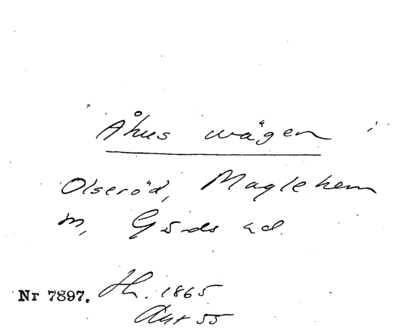 Åhus wägen i
Olseröd, Maglehem
sn, Gärds hd.
Nr 7897. Hh. 1865
Akt 55